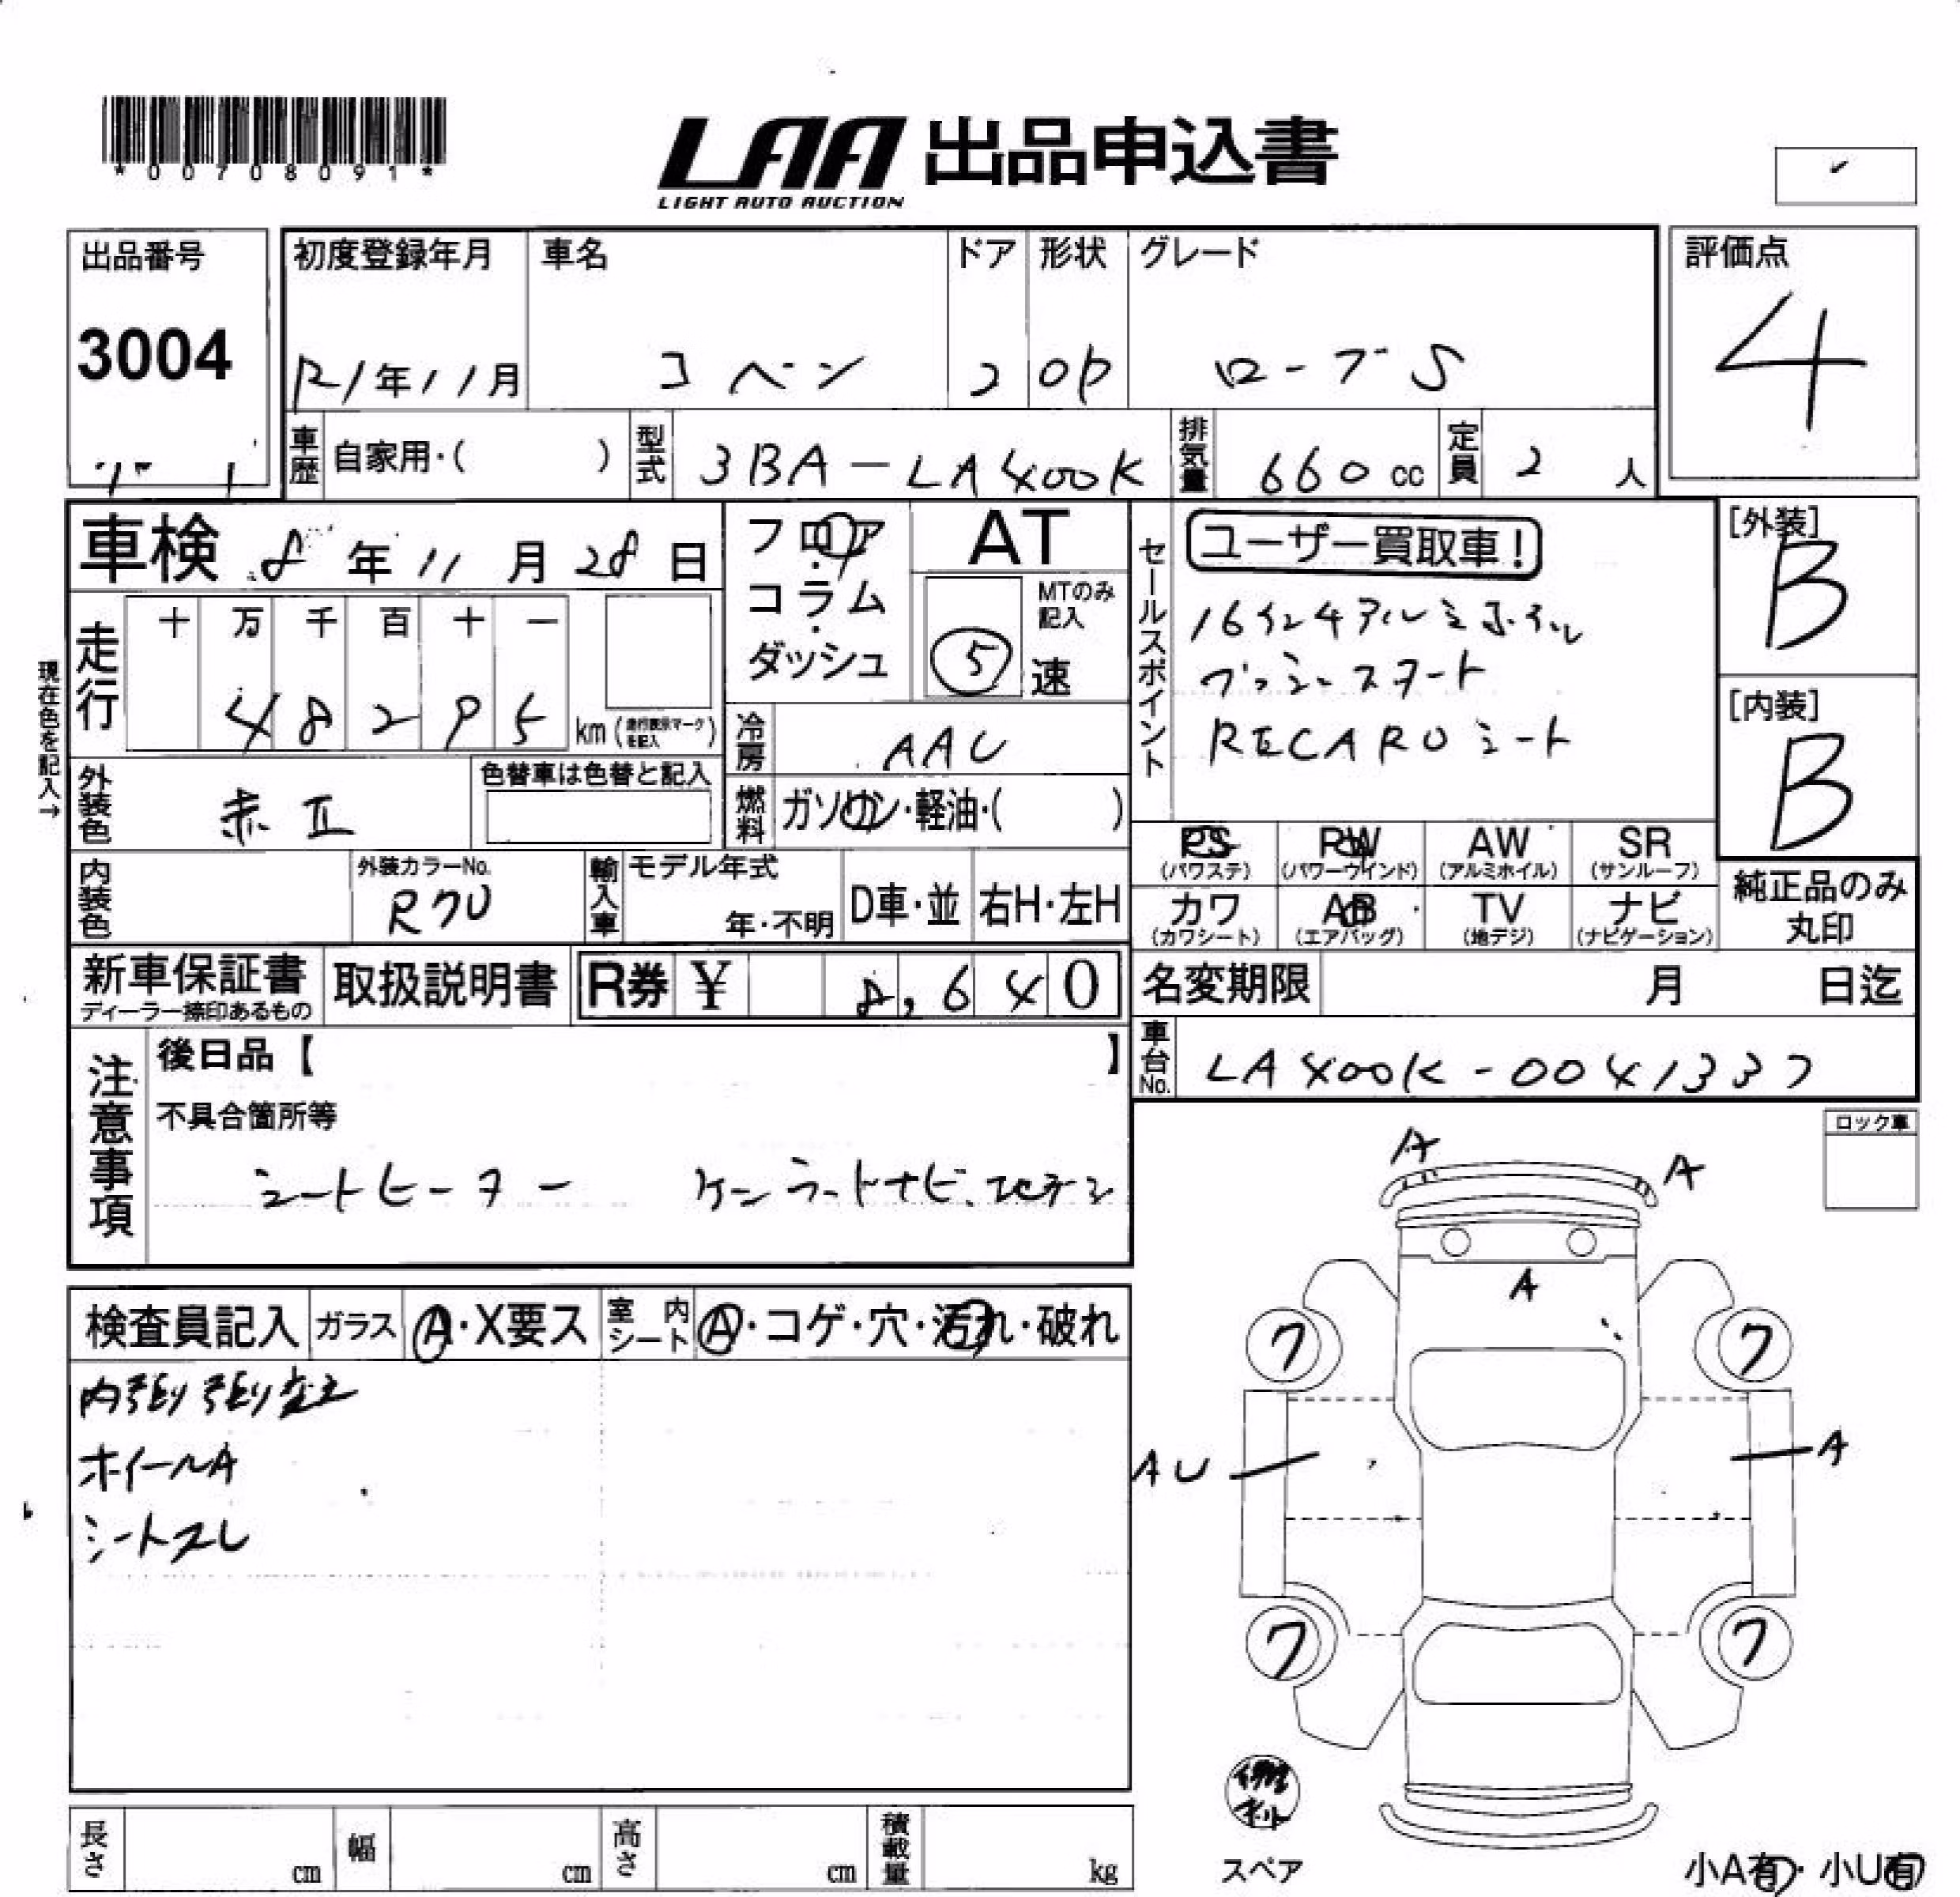 *00708091*
LAA 出品申込書
LIGHT AUTO AUCTION
出品番号
3004
初度登録年月
R1年11月
車名
コペン
ドア
2
形状
OP
グレード
ローブS
評価点
4
車歴
自家用・( )
型式
3BA-LA400K
排気量
660cc
定員
2人
車検 8年11月28日
フロア・コラム・ダッシュ
AT
MTのみ記入
5速
走行
十 万 千 百 十 一
48295 km (走行表示マークを記入)
現在色を記入→
冷房
AAC
外装色
赤II
色替車は色替と記入
燃料
ガソリン・軽油・( )
内装色
外装カラーNo.
輸入車
モデル年式
年・不明
D車・並
右H・左H
セールスポイント
ユーザー買取車!
16インチアルミホイル
プッシュスタート
RECAROシート
[外装]
B
[内装]
B
PS (パワステ)
PW (パワーウインド)
AW (アルミホイル)
SR (サンルーフ)
カワ (カワシート)
AB (エアバッグ)
TV (地デジ)
ナビ (ナビゲーション)
純正品のみ丸印
新車保証書
ディーラー捺印あるもの
取扱説明書
R券 ¥ 8,640
名変期限 月 日迄
車台No.
LA400K-0041337
注意事項
後日品【 】
不具合箇所等
シートヒーター ケンウッドナビ、
ロック車
A
A
A
ワ
ワ
AU
A
ワ
ワ
検査員記入
ガラス
A・X要ス
室内シート
A・コゲ・穴・汚れ・破れ
内張り張り
ホイールA
シートスレ
長さ cm
幅 cm
高さ cm
積載量 kg
スペア
小A有・小U有